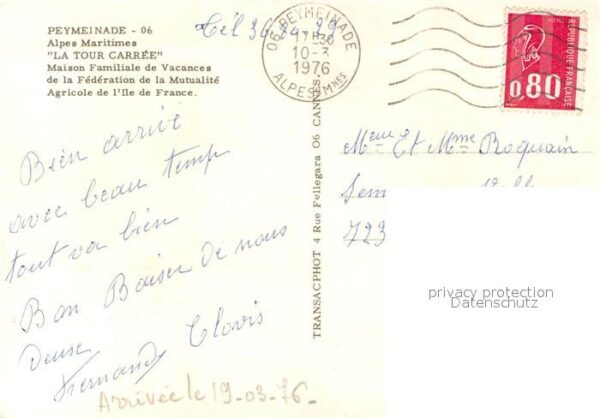 PEYMEINADE - 06
Alpes Maritimes
"LA TOUR CARRÉE"
Maison Familiale de Vacances
de la Fédération de la Mutualité
Agricole de l'Ile de France.
Tél 36
06 PEYMEINADE
17H30
10-3
1976
ALPES-Mmes
POSTES
REPUBLIQUE FRANÇAISE
0,80
Bien arrivé
avec beau temp
tout va bien
Bon Baiser de nous
Deux
Fernand Clovis
Arrivée le 19-03-76-
TRANSACPHOT 4 Rue Fellegara 06 CANNES
Meur Et Mme Roquain
723
privacy protection
Datenschutz